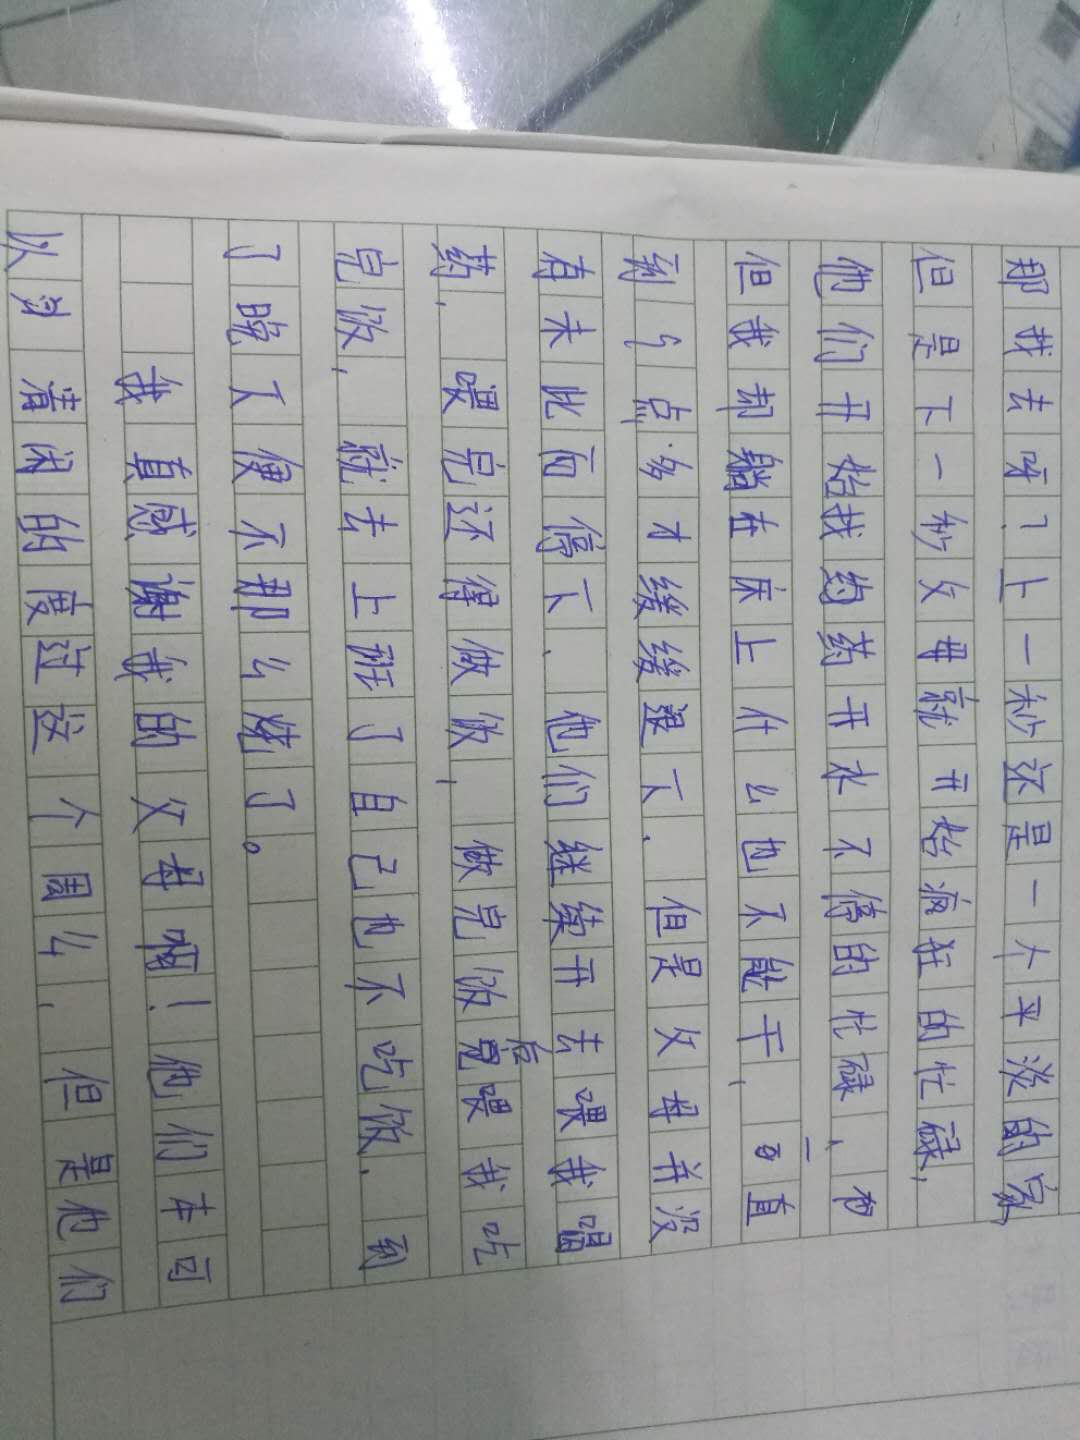 那我去呀？上一秒还是一个平淡的家，
但是下一秒父母就开始疯狂的忙碌，
他们开始找药开水不停的忙碌、而
但我却躺在床上什么也不能干，一直
到9点多才缓缓退下、但是父母并没
有未此而停下、他们继续开去喂我喝
药，喂完还得做饭，做完饭后喂我吃
完饭，就去上班了自己也不吃饭、到
了晚了便不那么烧了。
我真感谢我的父母啊！他们本可
以多清闲的度过这个周么、但是他们